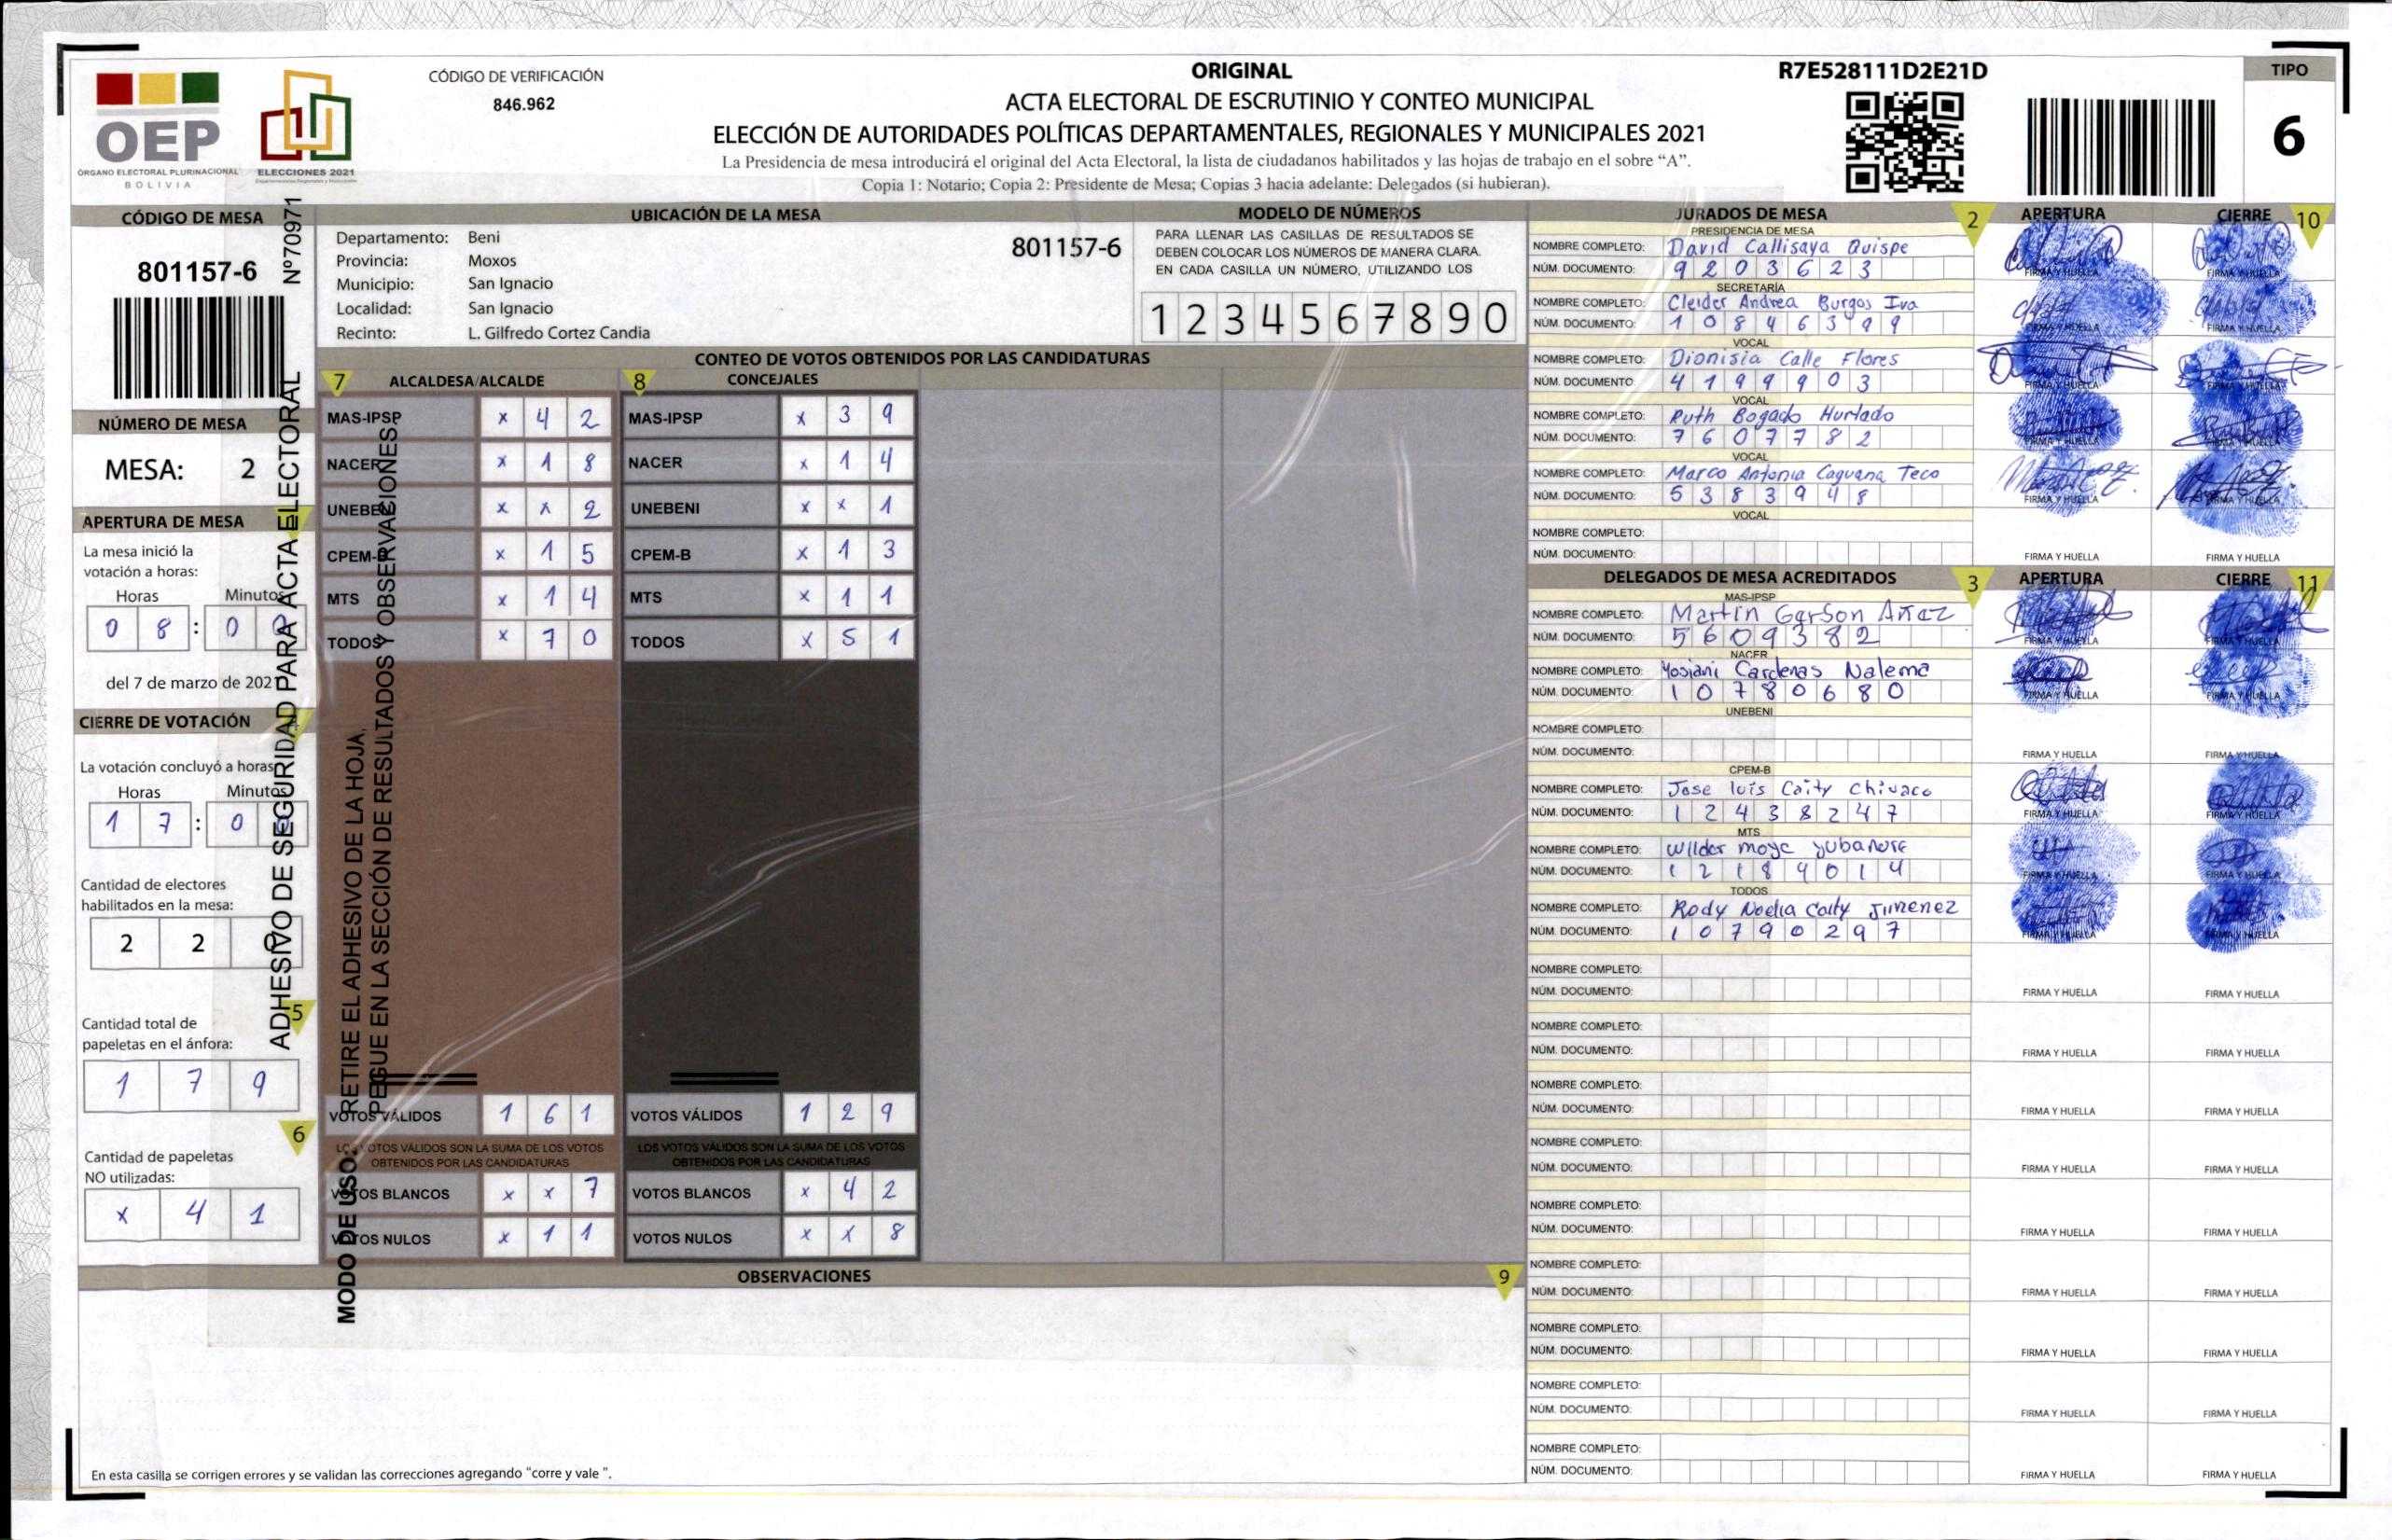 CÓDIGO DE VERIFICACIÓN
846.962
OEP
ÓRGANO ELECTORAL PLURINACIONAL
BOLIVIA
ELECCIONES 2021
ORIGINAL
ACTA ELECTORAL DE ESCRUTINIO Y CONTEO MUNICIPAL
ELECCIÓN DE AUTORIDADES POLÍTICAS DEPARTAMENTALES, REGIONALES Y MUNICIPALES 2021
La Presidencia de mesa introducirá el original del Acta Electoral, la lista de ciudadanos habilitados y las hojas de trabajo en el sobre “A”.
Copia 1: Notario; Copia 2: Presidente de Mesa; Copias 3 hacia adelante: Delegados (si hubieran).
R7E528111D2E21D
TIPO
6
CÓDIGO DE MESA
801157-6
NÚMERO DE MESA
MESA: 2
APERTURA DE MESA
La mesa inició la
votación a horas:
Horas Minutos
0 8 : 0
del 7 de marzo de 202
CIERRE DE VOTACIÓN
La votación concluyó a horas
Horas Minutos
1 7 : 0
Cantidad de electores
habilitados en la mesa:
2 2 0
5
Cantidad total de
papeletas en el ánfora:
1 7 9
6
Cantidad de papeletas
NO utilizadas:
x 4 1
ADHESIVO DE SEGURIDAD PARA ACTA ELECTORAL Nº70971
MODO DE USO: RETIRE EL ADHESIVO DE LA HOJA,
PEGUE EN LA SECCIÓN DE RESULTADOS Y OBSERVACIONES
UBICACIÓN DE LA MESA
Departamento: Beni
Provincia: Moxos
Municipio: San Ignacio
Localidad: San Ignacio
Recinto: L. Gilfredo Cortez Candia
801157-6
MODELO DE NÚMEROS
PARA LLENAR LAS CASILLAS DE RESULTADOS SE
DEBEN COLOCAR LOS NÚMEROS DE MANERA CLARA.
EN CADA CASILLA UN NÚMERO, UTILIZANDO LOS
1 2 3 4 5 6 7 8 9 0
CONTEO DE VOTOS OBTENIDOS POR LAS CANDIDATURAS
7 ALCALDESA/ALCALDE
MAS-IPSP x 4 2
NACER x 1 8
UNEBENI x x 2
CPEM-B x 1 5
MTS x 1 4
TODOS x 7 0
VOTOS VÁLIDOS 1 6 1
LOS VOTOS VÁLIDOS SON LA SUMA DE LOS VOTOS
OBTENIDOS POR LAS CANDIDATURAS
VOTOS BLANCOS x x 7
VOTOS NULOS x 1 1
8 CONCEJALES
MAS-IPSP x 3 9
NACER x 1 4
UNEBENI x x 1
CPEM-B x 1 3
MTS x 1 1
TODOS x 5 1
VOTOS VÁLIDOS 1 2 9
LOS VOTOS VÁLIDOS SON LA SUMA DE LOS VOTOS
OBTENIDOS POR LAS CANDIDATURAS
VOTOS BLANCOS x 4 2
VOTOS NULOS x x 8
OBSERVACIONES 9
En esta casilla se corrigen errores y se validan las correcciones agregando “corre y vale ”.
JURADOS DE MESA 2 APERTURA CIERRE 10
PRESIDENCIA DE MESA
NOMBRE COMPLETO: David Callisaya Quispe
NÚM. DOCUMENTO: 9203623
FIRMA Y HUELLA FIRMA Y HUELLA
SECRETARÍA
NOMBRE COMPLETO: Cleider Andrea Burgos Iva
NÚM. DOCUMENTO: 10846399
FIRMA Y HUELLA FIRMA Y HUELLA
VOCAL
NOMBRE COMPLETO: Dionisia Calle Flores
NÚM. DOCUMENTO: 4199903
FIRMA Y HUELLA FIRMA Y HUELLA
VOCAL
NOMBRE COMPLETO: Ruth Bogado Hurtado
NÚM. DOCUMENTO: 7607782
FIRMA Y HUELLA FIRMA Y HUELLA
VOCAL
NOMBRE COMPLETO: Marco Antonia Caguana Teco
NÚM. DOCUMENTO: 5383948
FIRMA Y HUELLA FIRMA Y HUELLA
VOCAL
NOMBRE COMPLETO:
NÚM. DOCUMENTO:
FIRMA Y HUELLA FIRMA Y HUELLA
DELEGADOS DE MESA ACREDITADOS 3 APERTURA CIERRE 11
MAS-IPSP
NOMBRE COMPLETO: Martin Garson Añez
NÚM. DOCUMENTO: 5609382
FIRMA Y HUELLA FIRMA Y HUELLA
NACER
NOMBRE COMPLETO: Yosiani Cardenas Nalema
NÚM. DOCUMENTO: 10780680
FIRMA Y HUELLA FIRMA Y HUELLA
UNEBENI
NOMBRE COMPLETO:
NÚM. DOCUMENTO:
FIRMA Y HUELLA FIRMA Y HUELLA
CPEM-B
NOMBRE COMPLETO: Jose luis Caity Chivaco
NÚM. DOCUMENTO: 12438247
FIRMA Y HUELLA FIRMA Y HUELLA
MTS
NOMBRE COMPLETO: Wilder moye yubanure
NÚM. DOCUMENTO: 12189014
FIRMA Y HUELLA FIRMA Y HUELLA
TODOS
NOMBRE COMPLETO: Rody Noelia Caity Jimenez
NÚM. DOCUMENTO: 10790297
FIRMA Y HUELLA FIRMA Y HUELLA
NOMBRE COMPLETO:
NÚM. DOCUMENTO:
FIRMA Y HUELLA FIRMA Y HUELLA
NOMBRE COMPLETO:
NÚM. DOCUMENTO:
FIRMA Y HUELLA FIRMA Y HUELLA
NOMBRE COMPLETO:
NÚM. DOCUMENTO:
FIRMA Y HUELLA FIRMA Y HUELLA
NOMBRE COMPLETO:
NÚM. DOCUMENTO:
FIRMA Y HUELLA FIRMA Y HUELLA
NOMBRE COMPLETO:
NÚM. DOCUMENTO:
FIRMA Y HUELLA FIRMA Y HUELLA
NOMBRE COMPLETO:
NÚM. DOCUMENTO:
FIRMA Y HUELLA FIRMA Y HUELLA
NOMBRE COMPLETO:
NÚM. DOCUMENTO:
FIRMA Y HUELLA FIRMA Y HUELLA
NOMBRE COMPLETO:
NÚM. DOCUMENTO:
FIRMA Y HUELLA FIRMA Y HUELLA
NOMBRE COMPLETO:
NÚM. DOCUMENTO:
FIRMA Y HUELLA FIRMA Y HUELLA